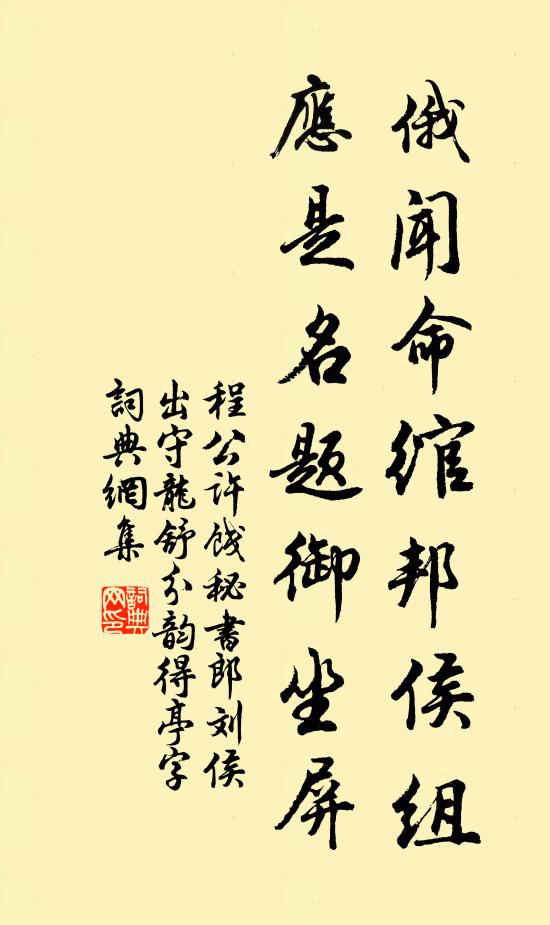 俄聞命綰邦侯組
應是名題御坐屏
程公许饯秘書郎刘侯
出守龍舒分韵得亭字
詞典網集
詞典
网印